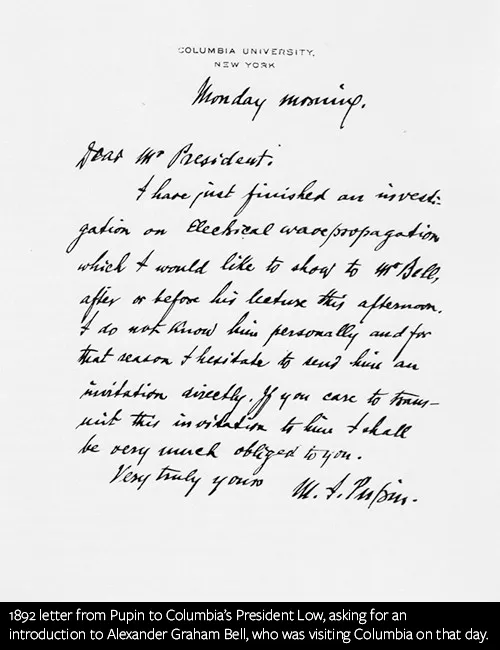 COLUMBIA UNIVERSITY.
NEW YORK
Monday morning.
Dear Mr President.
I have just finished an investi-
gation on Electrical wave propagation
which I would like to show to Mr Bell,
after or before his lecture this afternoon.
I do not know him personally and for
that reason I hesitate to send him an
invitation directly. If you care to trans-
mit this invitation to him I shall
be very much obliged to you.
Very truly yours M. I. Pupin.
1892 letter from Pupin to Columbia's President Low, asking for an
introduction to Alexander Graham Bell, who was visiting Columbia on that day.